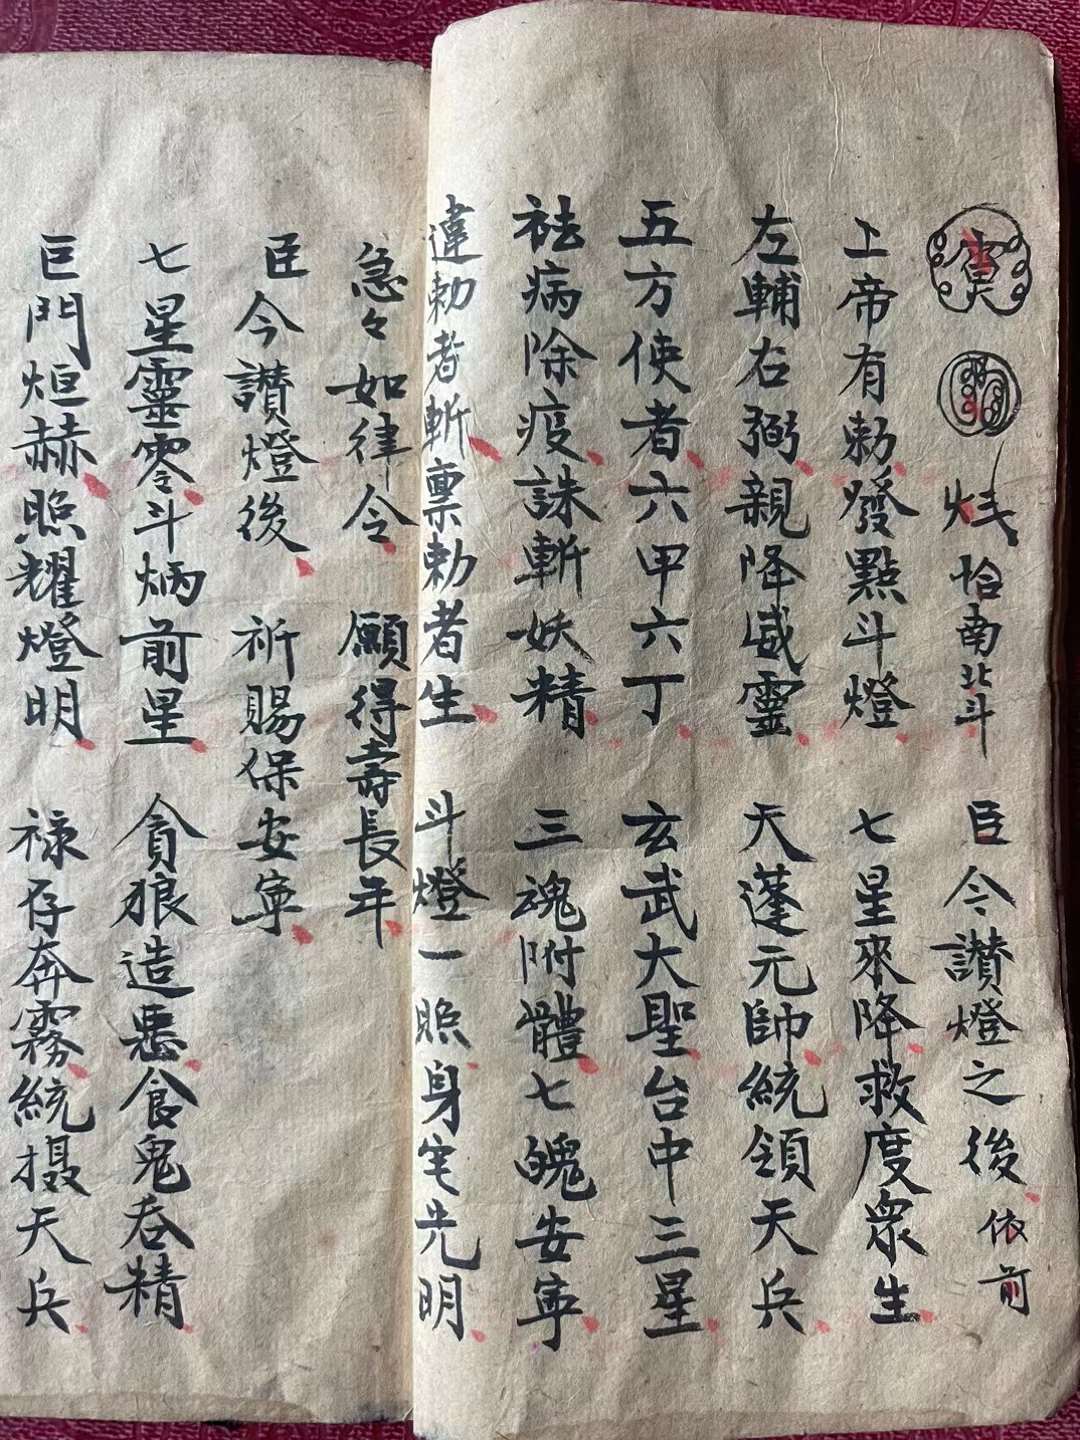 恰南北斗 臣今讃燈之後 依前
上帝有勅發點斗燈 七星來降救度眾生
左輔右弼親降威靈 天蓬元帥統領天兵
五方使者六甲六丁 玄武大聖台中三星
祛病除疫誅斬妖精 三魂附體七魄安寧
違勅者斬禀勅者生 斗燈一照身宅光明
急々如律令 願得壽長年
臣今讃燈後 祈賜保安寧
七星靈零斗炳前星 貪狼造惡食鬼吞精
巨門烜赫照耀燈明 禄存奔霧統摄天兵